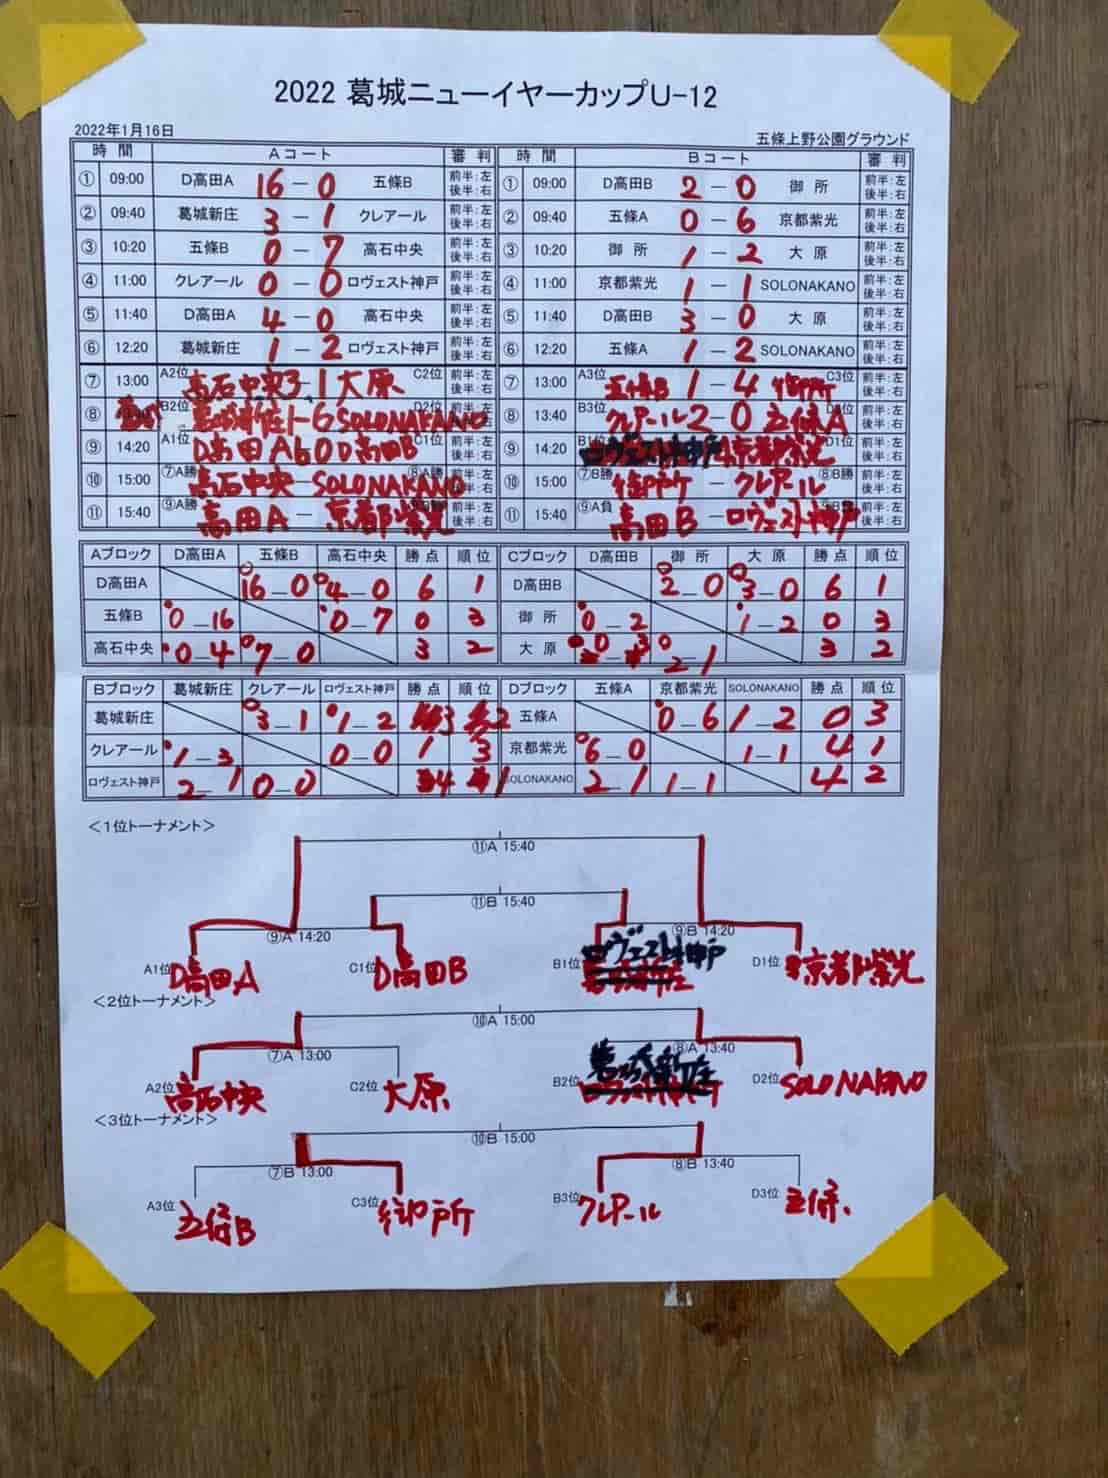 2022 葛城ニューイヤーカップU-12
2022年1月16日
五條上野公園グラウンド
時間 Aコート 審判 時間 Bコート 審判
① 09:00 D高田A 16 - 0 五條B 前半:左 後半:右 ① 09:00 D高田B 2 - 0 御所 前半:左 後半:右
② 09:40 葛城新庄 3 - 1 クレアール 前半:左 後半:右 ② 09:40 五條A 0 - 6 京都紫光 前半:左 後半:右
③ 10:20 五條B 0 - 7 高石中央 前半:左 後半:右 ③ 10:20 御所 1 - 2 大原 前半:左 後半:右
④ 11:00 クレアール 0 - 0 ロヴェスト神戸 前半:左 後半:右 ④ 11:00 京都紫光 1 - 1 SOLONAKANO 前半:左 後半:右
⑤ 11:40 D高田A 4 - 0 高石中央 前半:左 後半:右 ⑤ 11:40 D高田B 3 - 0 大原 前半:左 後半:右
⑥ 12:20 葛城新庄 1 - 2 ロヴェスト神戸 前半:左 後半:右 ⑥ 12:20 五條A 1 - 2 SOLONAKANO 前半:左 後半:右
⑦ 13:00 A2位 高石中央 3 - 1 大原 C2位 前半:左 後半:右 ⑦ 13:00 A3位 五條B 1 - 4 御所 C3位 前半:左 後半:右
⑧ B2位 葛城新庄 1 - 6 SOLONAKANO D2位 前半:左 後半:右 ⑧ 13:40 B3位 クレアール 2 - 0 五條A 前半:左 後半:右
⑨ 14:20 A1位 D高田A 0 D高田B C1位 前半:左 後半:右 ⑨ 14:20 B1位 ロヴェスト神戸 京都紫光 D1位 前半:左 後半:右
⑩ 15:00 ⑦A勝 高石中央 - SOLONAKANO ⑧A勝 前半:左 後半:右 ⑩ 15:00 ⑦B勝 御所 - クレアール ⑧B勝 前半:左 後半:右
⑪ 15:40 ⑨A勝 高田A - 京都紫光 前半:左 後半:右 ⑪ 15:40 ⑨A負 高田B - ロヴェスト神戸 前半:左 後半:右
Aブロック D高田A 五條B 高石中央 勝点 順位 Cブロック D高田B 御所 大原 勝点 順位
D高田A 16 - 0 4 - 0 6 1 D高田B 2 - 0 3 - 0 6 1
五條B 0 - 16 0 - 7 0 3 御所 0 - 2 1 - 2 0 3
高石中央 0 - 4 7 - 0 3 2 大原 0 - 3 2 - 1 3 2
Bブロック 葛城新庄 クレアール ロヴェスト神戸 勝点 順位 Dブロック 五條A 京都紫光 SOLONAKANO 勝点 順位
葛城新庄 3 - 1 1 - 2 3 2 五條A 0 - 6 1 - 2 0 3
クレアール 1 - 3 0 - 0 1 3 京都紫光 6 - 0 1 - 1 4 1
ロヴェスト神戸 2 - 1 0 - 0 4 1 SOLONAKANO 2 - 1 1 - 1 4 2
<1位トーナメント>
⑪A 15:40
⑪B 15:40
⑨A 14:20 ⑨B 14:20
A1位 D高田A C1位 D高田B B1位 ロヴェスト神戸 D1位 京都紫光
<2位トーナメント>
⑩A 15:00
⑦A 13:00 ⑧A 13:40
A2位 高石中央 C2位 大原 B2位 葛城新庄 D2位 SOLONAKANO
<3位トーナメント>
⑩B 15:00
⑦B 13:00 ⑧B 13:40
A3位 五條B C3位 御所 B3位 クレアール D3位 五條